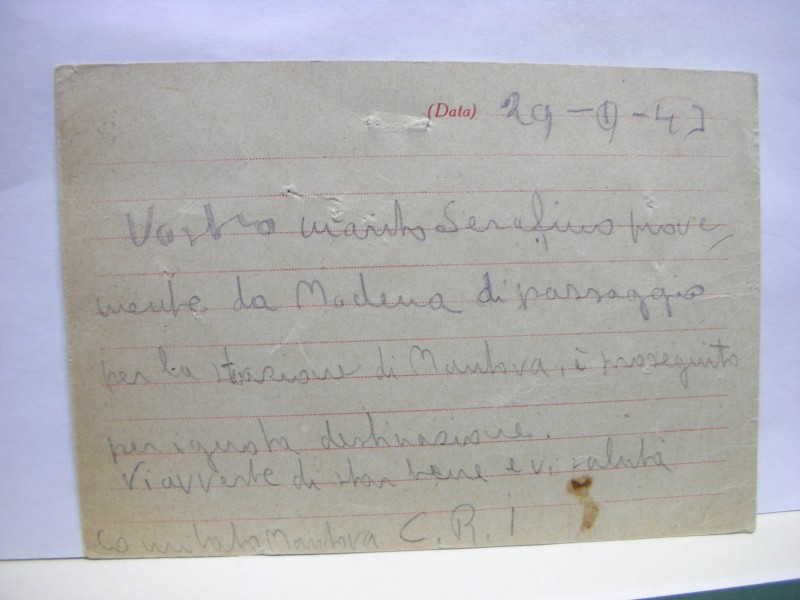 (Data) 29-9-43
Vostro marito Serafino prove,
niente da Modena di passaggio
per la stazione di Mantova, è proseguito
per ignota destinazione.
Vi avverte di star bene e vi saluta
Comitato Mantova C.R.I